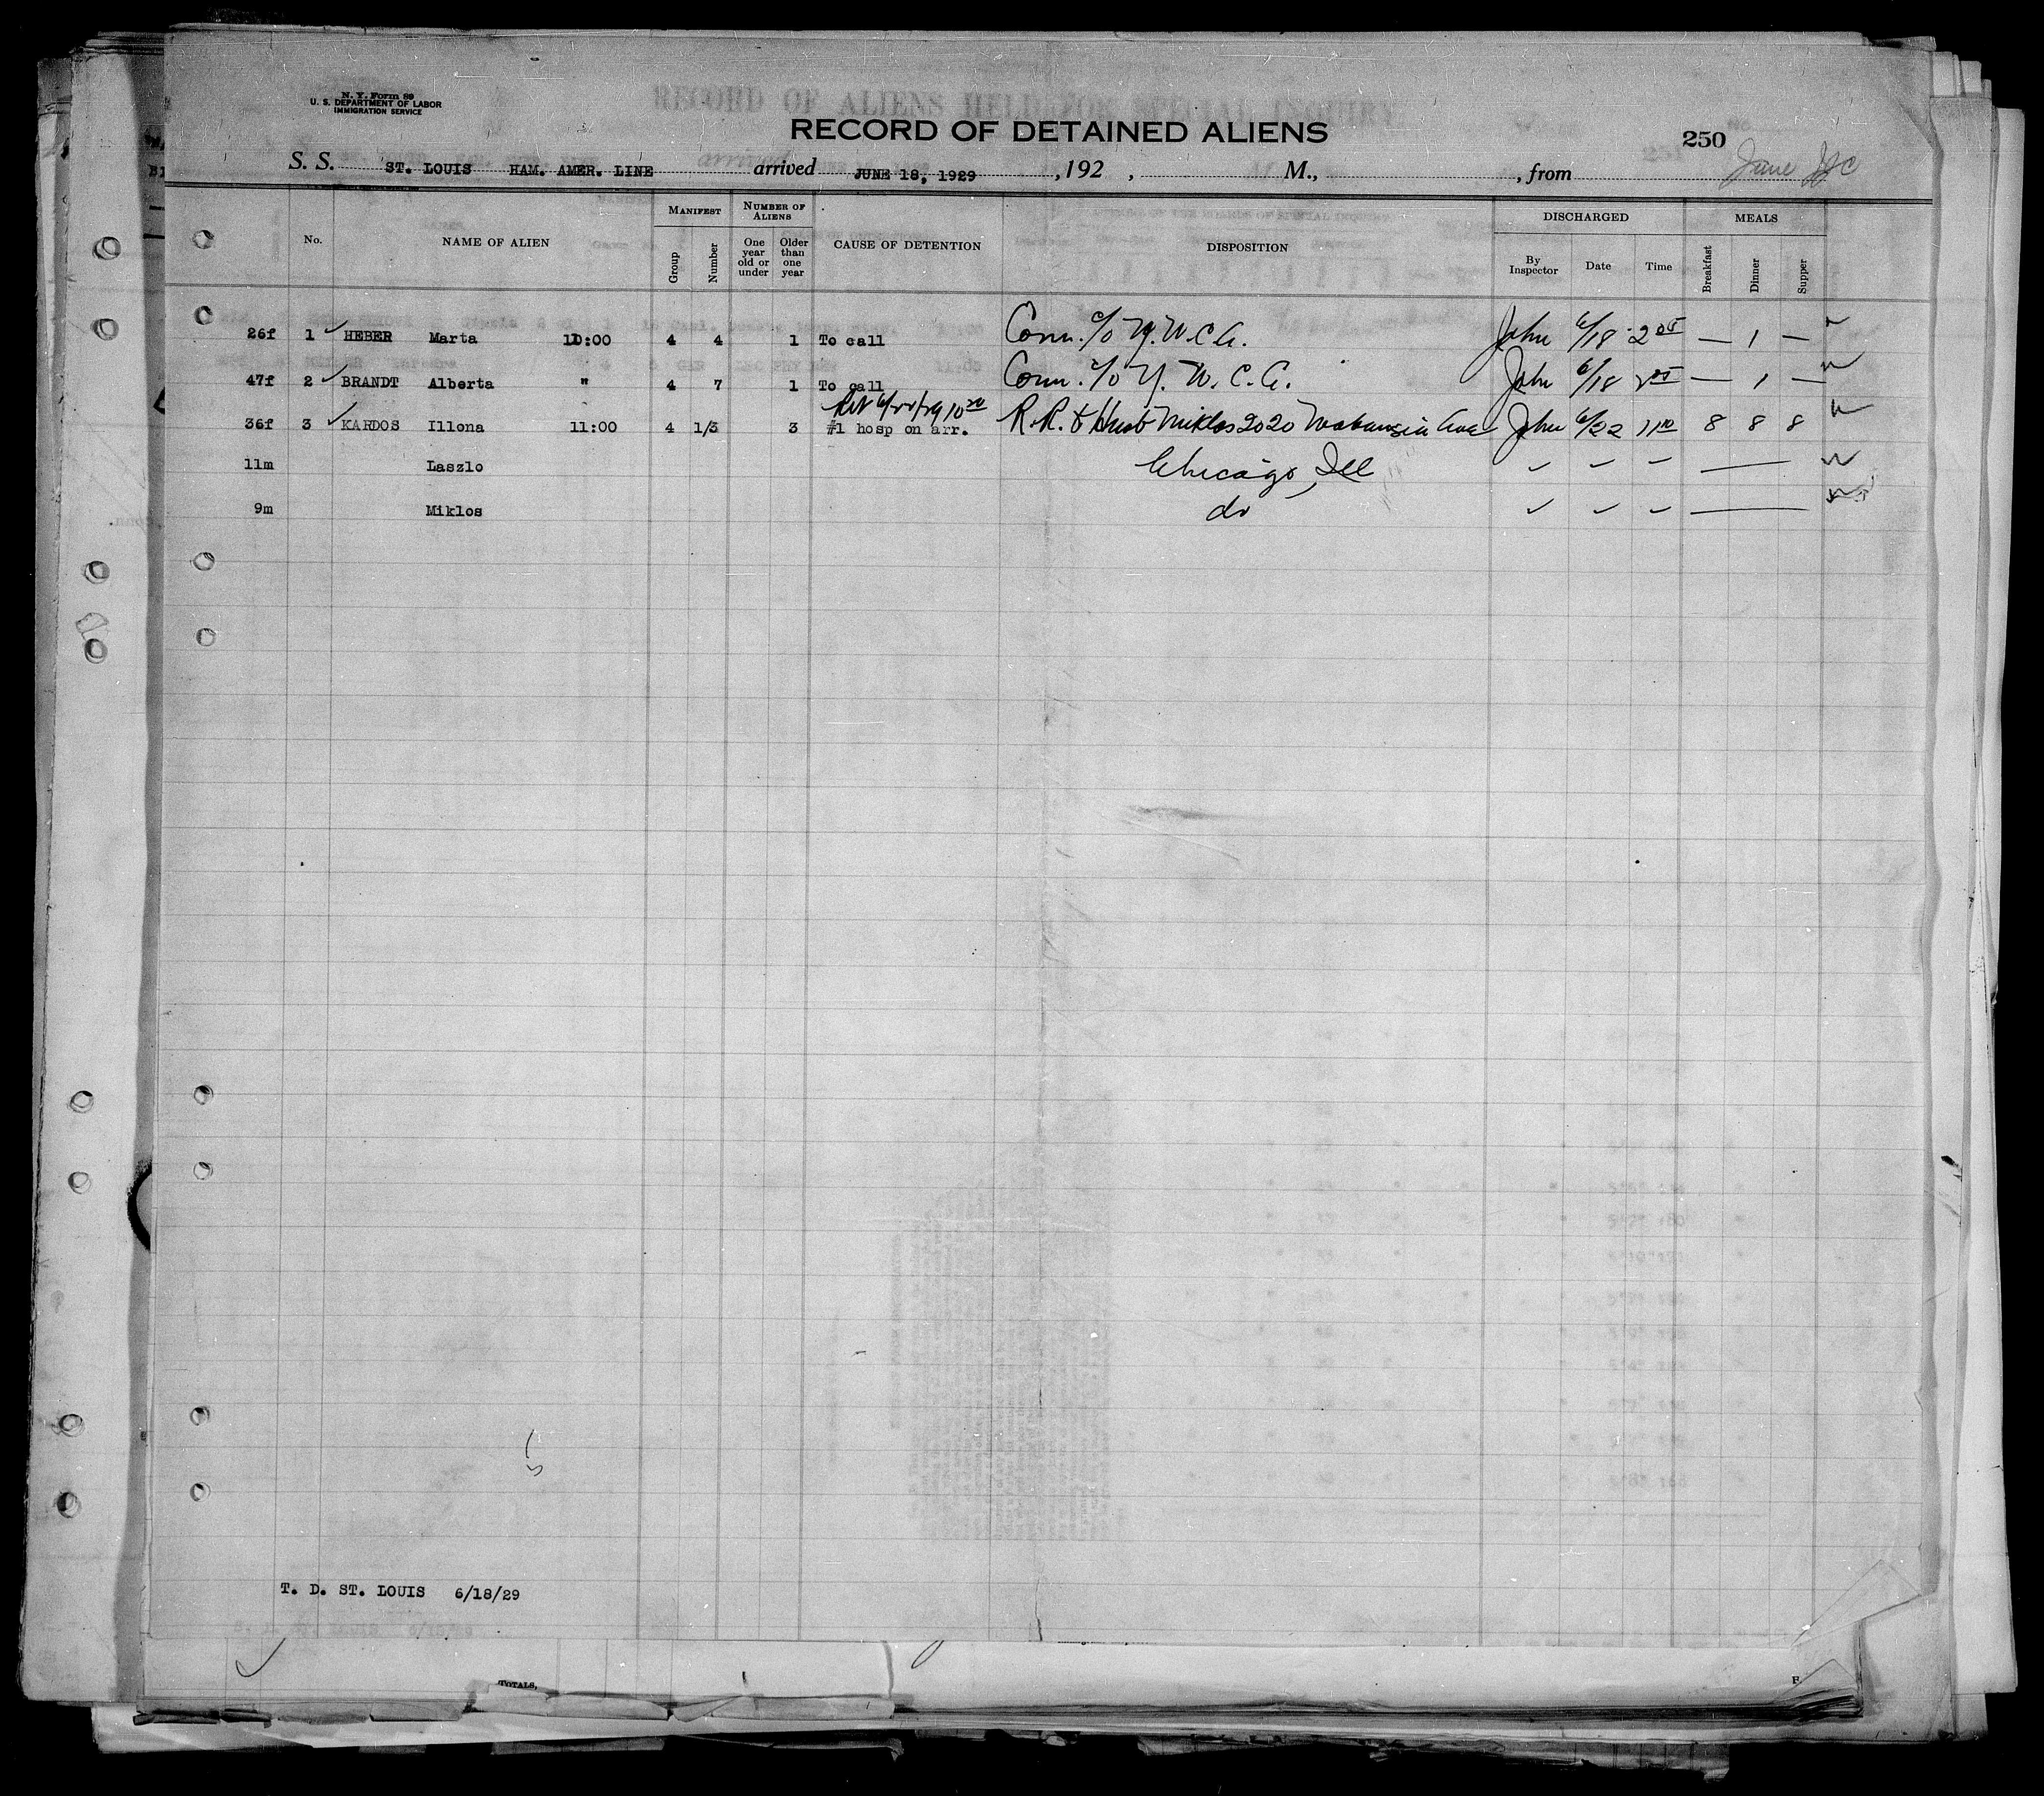 N. Y. Form 89
U. S. DEPARTMENT OF LABOR
IMMIGRATION SERVICE
RECORD OF ALIENS HELD FOR SPECIAL INQUIRY
RECORD OF DETAINED ALIENS
250
S. S. ST. LOUIS HAM. AMER. LINE arrived JUNE 18, 1929 , 192 , M., , from
No. NAME OF ALIEN MANIFEST Group Number NUMBER OF ALIENS One year old or under Older than one year CAUSE OF DETENTION DISPOSITION DISCHARGED By Inspector Date Time MEALS Breakfast Dinner Supper
26f 1 ✓ HEBER Marta 10:00 4 4 1 To call Conn. c/o Y. W. C. A. John 6/18 2 05 — 1 —
47f 2 ✓ BRANDT Alberta " 4 7 1 To call Conn. c/o Y. W. C. A. John 6/18 2 05 — 1 —
36f 3 ✓ KARDOS Illona 11:00 4 1/3 3 #1 hosp on arr. R.R. to Husb Miklos 2020 Wabansia Ave John 6/22 11 10 8 8 8
11m Laszlo Chicago, Ill ✓ ✓ ✓ —
9m Miklos do ✓ ✓ ✓ —
T. D. ST. LOUIS 6/18/29
TOTALS,